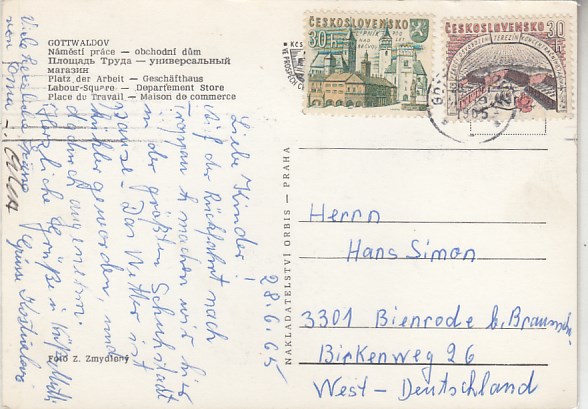 GOTTWALDOV
Náměstí práce — obchodní dům
Площадь Труда — универсальный
магазин
Platz der Arbeit — Geschäfthaus
Labour-Square — Department Store
Place du Travail — Maison de commerce
ČESKOSLOVENSKO
30h
ČESKOSLOVENSKO
30h
TEREZÍN
1965
Liebe Kinder!
Auf der Rückfahrt nach
Troppau machen wir hier
in der größten Schuhstadt
Pause. Das Wetter ist
kühler geworden, und
dadurch angenehm.
Herzliche Grüße
Viele herzliche Grüße
von
28.6.65
NAKLADATELSTVÍ ORBIS — PRAHA
Foto Z. Zmydlený
Herrn
Hans Simon
3301 Bienrode b. Braunschw.
Birkenweg 26
West-Deutschland